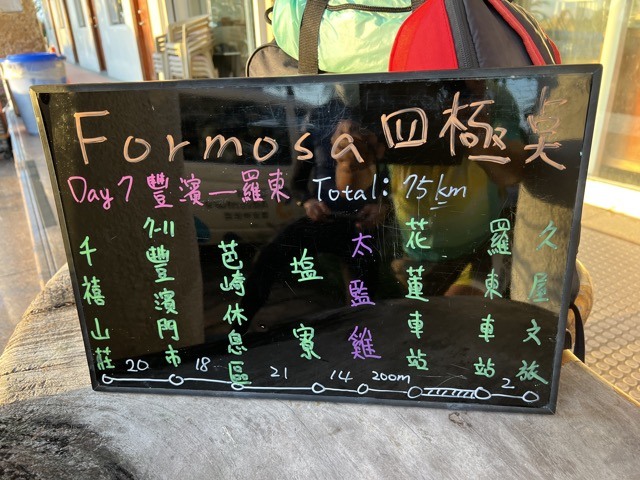 Formosa 四極點
Day7 豐濱—羅東 Total: 75km
千禧山莊
7-11豐濱門市
芭崎休息區
塩寮
太監雞
花蓮車站
羅東車站
久屋文旅
20 18 21 14 200m 2